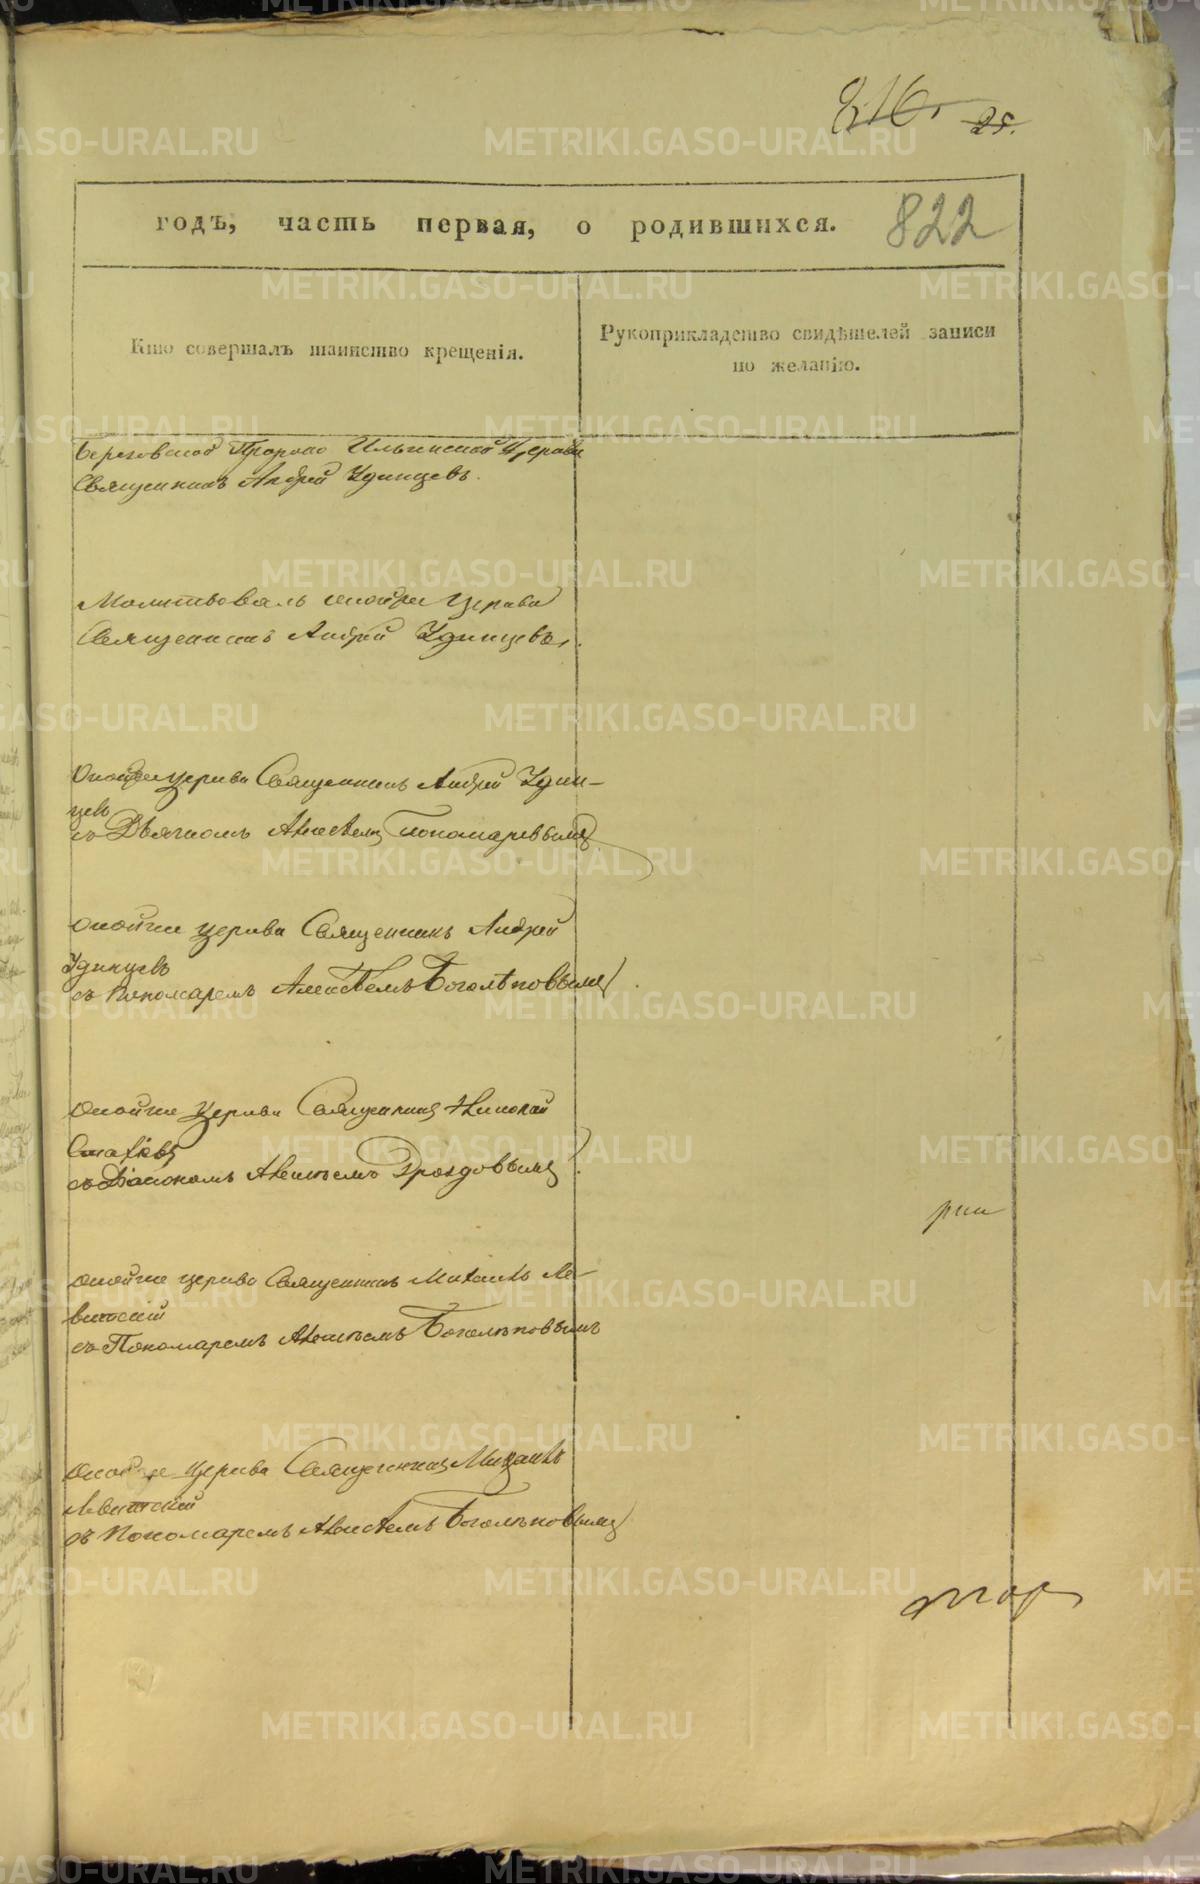 216. 25.
годъ, часть первая, о родившихся. 822
Кто совершалъ таинство крещенія.
Рукоприкладство свидѣтелей записи
по желанію.
Пророко Ильинской Церкви
Священникъ Андрей Удинцевъ.
Молитвовалъ Церкви
Священникъ Андрей Удинцевъ.
Церкви Священникъ Андрей Удин-
цевъ
съ Дьячкомъ Алексѣемъ Пономаревымъ
оной же Церкви Священникъ Андрей
Удинцевъ
съ Пономаремъ Алексѣемъ Боголѣповымъ
оной же Церкви Священникъ Николай
съ Діакономъ Дроздовымъ
оной же церкви Священникъ Михаилъ Ле-
витскій
съ Пономаремъ Алексѣемъ Боголѣповымъ
оной же Церкви Священникъ Михаилъ
Левитскій
съ Пономаремъ Алексѣемъ Боголѣповымъ
METRIKI.GASO-URAL.RU